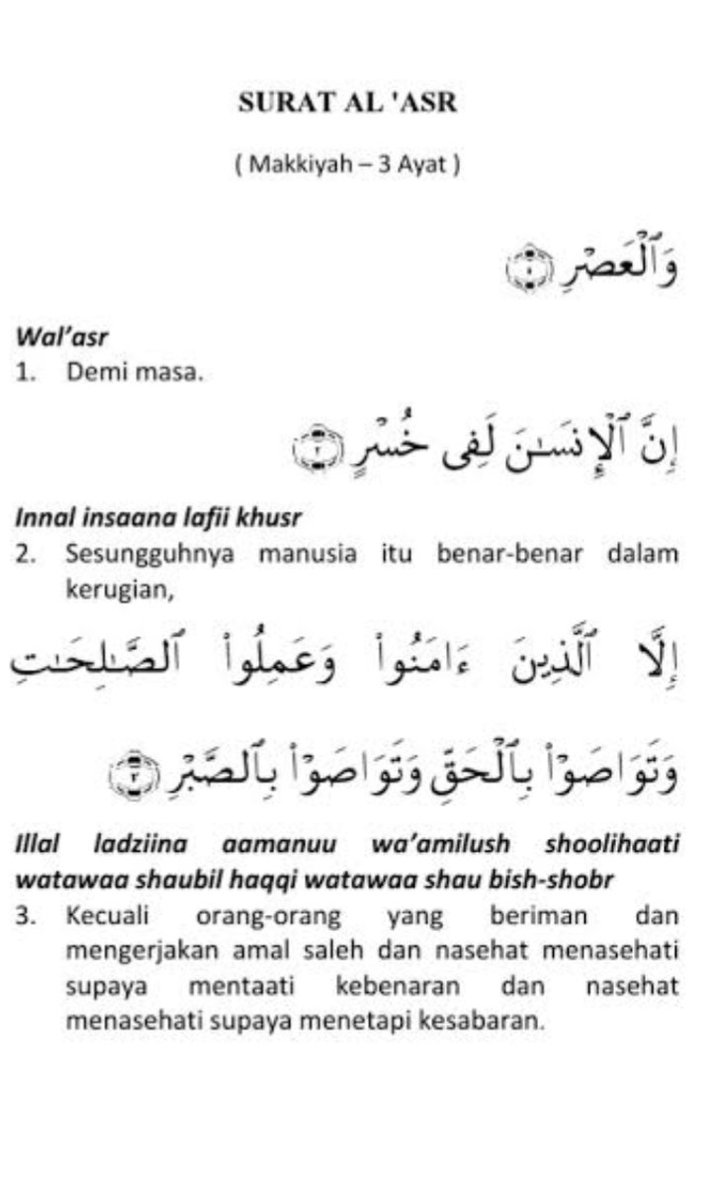 SURAT AL 'ASR
( Makkiyah – 3 Ayat )
وَٱلْعَصْرِ ١
Wal’asr
1. Demi masa.
إِنَّ ٱلْإِنسَـٰنَ لَفِى خُسْرٍ ٢
Innal insaana lafii khusr
2. Sesungguhnya manusia itu benar-benar dalam
kerugian,
إِلَّا ٱلَّذِينَ ءَامَنُوا۟ وَعَمِلُوا۟ ٱلصَّـٰلِحَـٰتِ
وَتَوَاصَوْا۟ بِٱلْحَقِّ وَتَوَاصَوْا۟ بِٱلصَّبْرِ ٣
Illal ladziina aamanuu wa’amilush shoolihaati
watawaa shaubil haqqi watawaa shau bish-shobr
3. Kecuali orang-orang yang beriman dan
mengerjakan amal saleh dan nasehat menasehati
supaya mentaati kebenaran dan nasehat
menasehati supaya menetapi kesabaran.